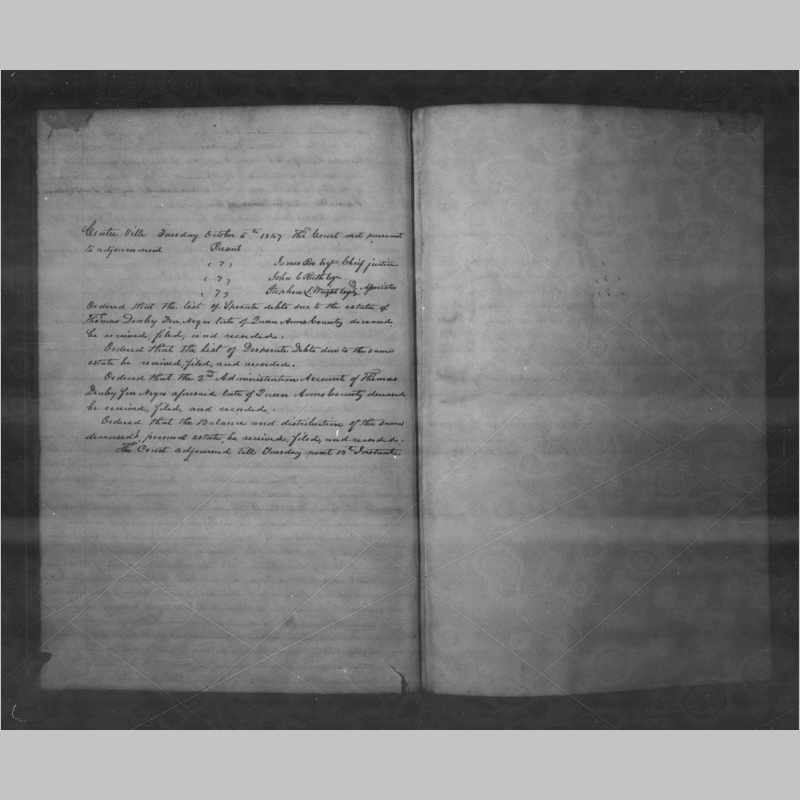 Centre Ville Tuesday October 5th 1847 The Court met pursuant
to adjournment Present
James Esqr Chief justice
John C Ruth Esqr
Stephen C Wright Esqr Associates
Ordered that the list of Sperate debts due to the estate of
Thomas Denby Free Negro late of Queen Anns County deceased
be received, filed, and recorded.
Ordered that the List of Desperate Debts due to the same
estate be received, filed, and recorded.
Ordered that the 2nd Administration Account of Thomas
Denby Free Negro aforesaid late of Queen Anns County deceased
be received, filed, and recorded.
Ordered that the Balance and distribution of the same
deceased's personal estate, be received, filed, and recorded.
The Court adjourned till Tuesday next 12th Instant.